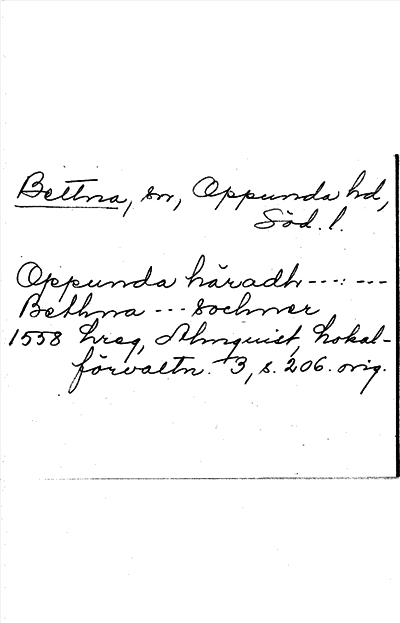 Bettna, sn, Oppunda hd,
Söd. l.
Oppunda häradh----:---
Bethna --- sochner
1558 hreg, Almquist, Lokal-
förvaltn. 3, s. 206. orig.